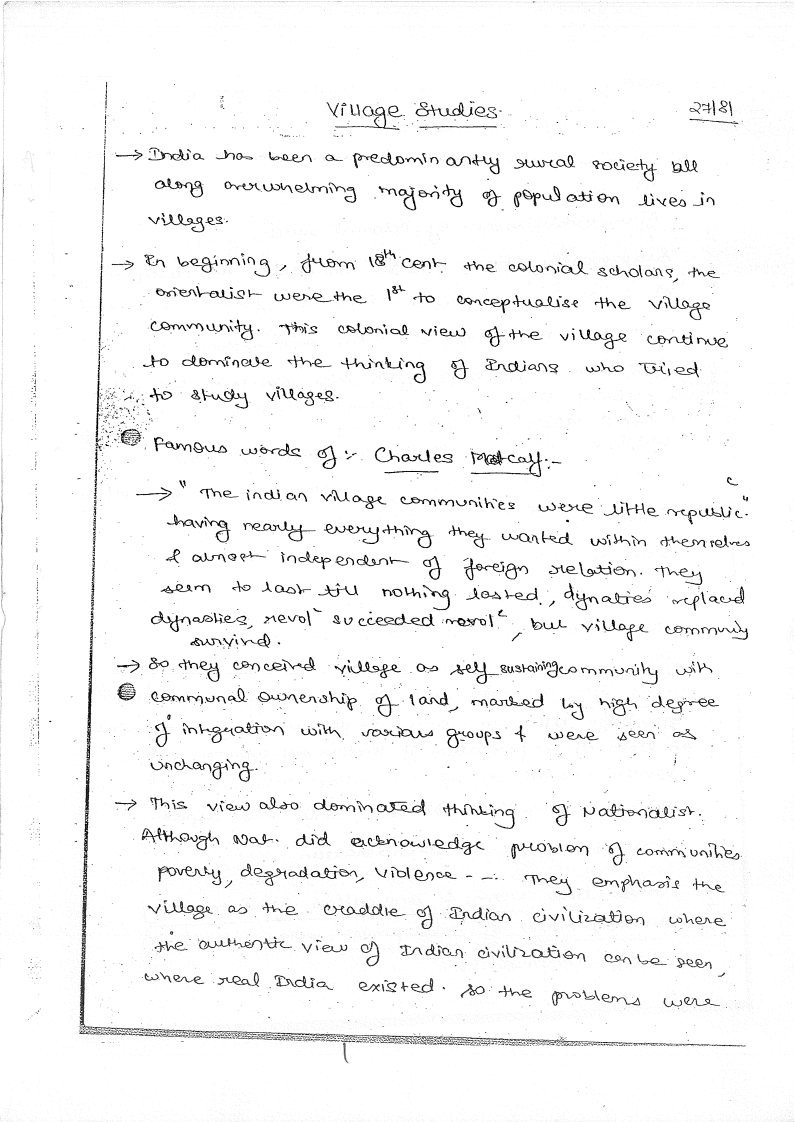 Village Studies.
27/8/
→ India has been a predominantly rural society all
along overwhelming majority of population lives in
villages.
→ In beginning, from 18th cent. the colonial scholars, the
orientalist were the 1st to conceptualise the village
community. This colonial view of the village continue
to dominate the thinking of Indians who tried
to study villages.
Famous words of :- Charles Metcalf:-
→ "The indian village communities were little republic."
having nearly everything they wanted within themselves
& almost independent of foreign relation. They
seem to last till nothing lasted, dynaties replaced
dynasties, revolⁿ succeeded revolⁿ, but village community
survived.
→ So they conceived village as self sustaining community with
communal ownership of land, marked by high degree
of integration with various groups & were seen as
unchanging.
→ This view also dominated thinking of Nationalist.
Although Nat. did acknowledge problem of communities
poverty, degradation, violence --. They emphasis the
village as the craddle of Indian civilization where
the authentic view of Indian civilization can be seen,
where real India existed. So the problems were
1